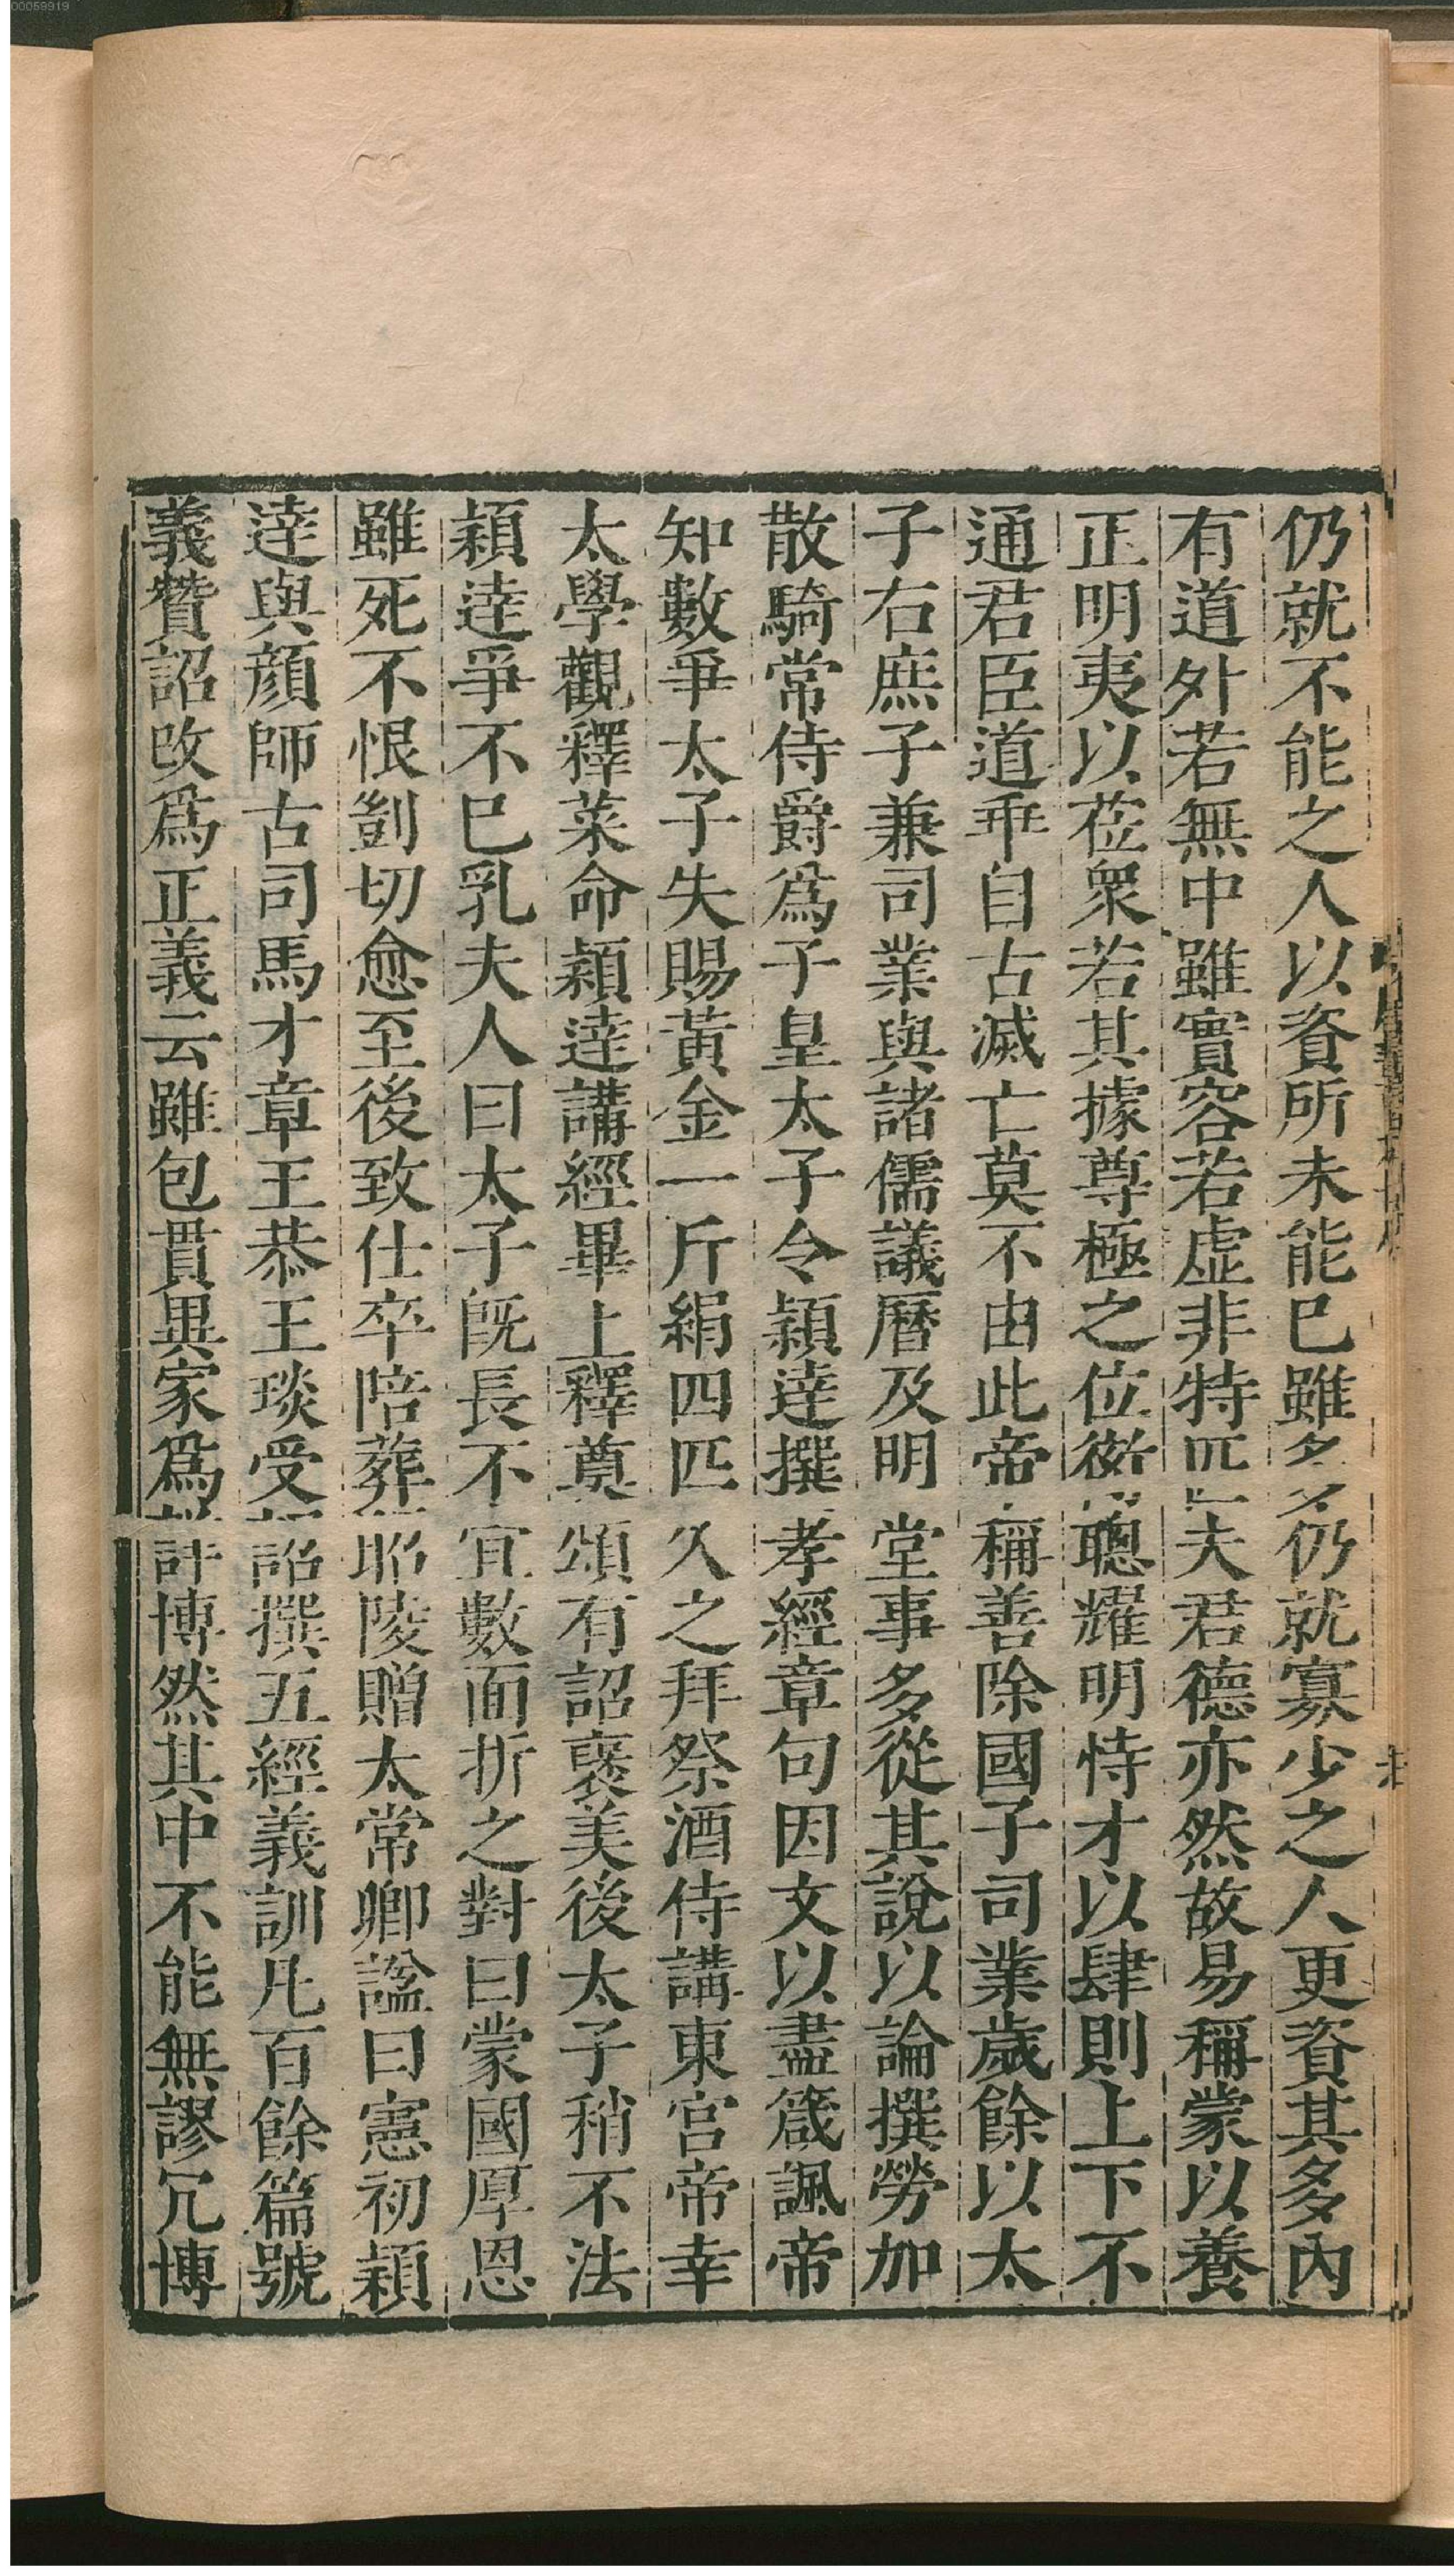 00059919
仍就不能之人以資所未能已雖多多仍就寡少之人更資其多內
有道外若無中雖實容若虛非特匹夫君德亦然故易稱蒙以養
正明夷以莅衆若其據尊極之位衒聰耀明恃才以肆則上下不
通君臣道乖自古滅亡莫不由此帝稱善除國子司業歲餘以太
子右庶子兼司業與諸儒議曆及明堂事多從其說以論撰勞加
散騎常侍爵爲子皇太子令穎達撰孝經章句因文以盡箴諷帝
知數爭太子失賜黃金一斤絹四匹久之拜祭酒侍講東宮帝幸
太學觀釋菜命穎達講經畢上釋奠頌有詔襃美後太子稍不法
穎達爭不已乳夫人曰太子旣長不宜數面折之對曰蒙國厚恩
雖死不恨剴切愈至後致仕卒陪葬昭陵贈太常卿諡曰憲初穎
達與顏師古司馬才章王恭王琰受詔撰五經義訓凡百餘篇號
義贊詔改爲正義云雖包貫異家爲詳博然其中不能無謬冗博